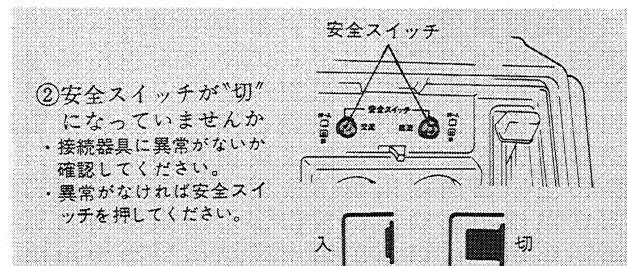 安全スイッチ
②安全スイッチが〝切〟
になっていませんか
・接続器具に異常がないか
確認してください。
・異常がなければ安全スイ
ッチを押してください。
安全スイッチ
交流
直流
入
切